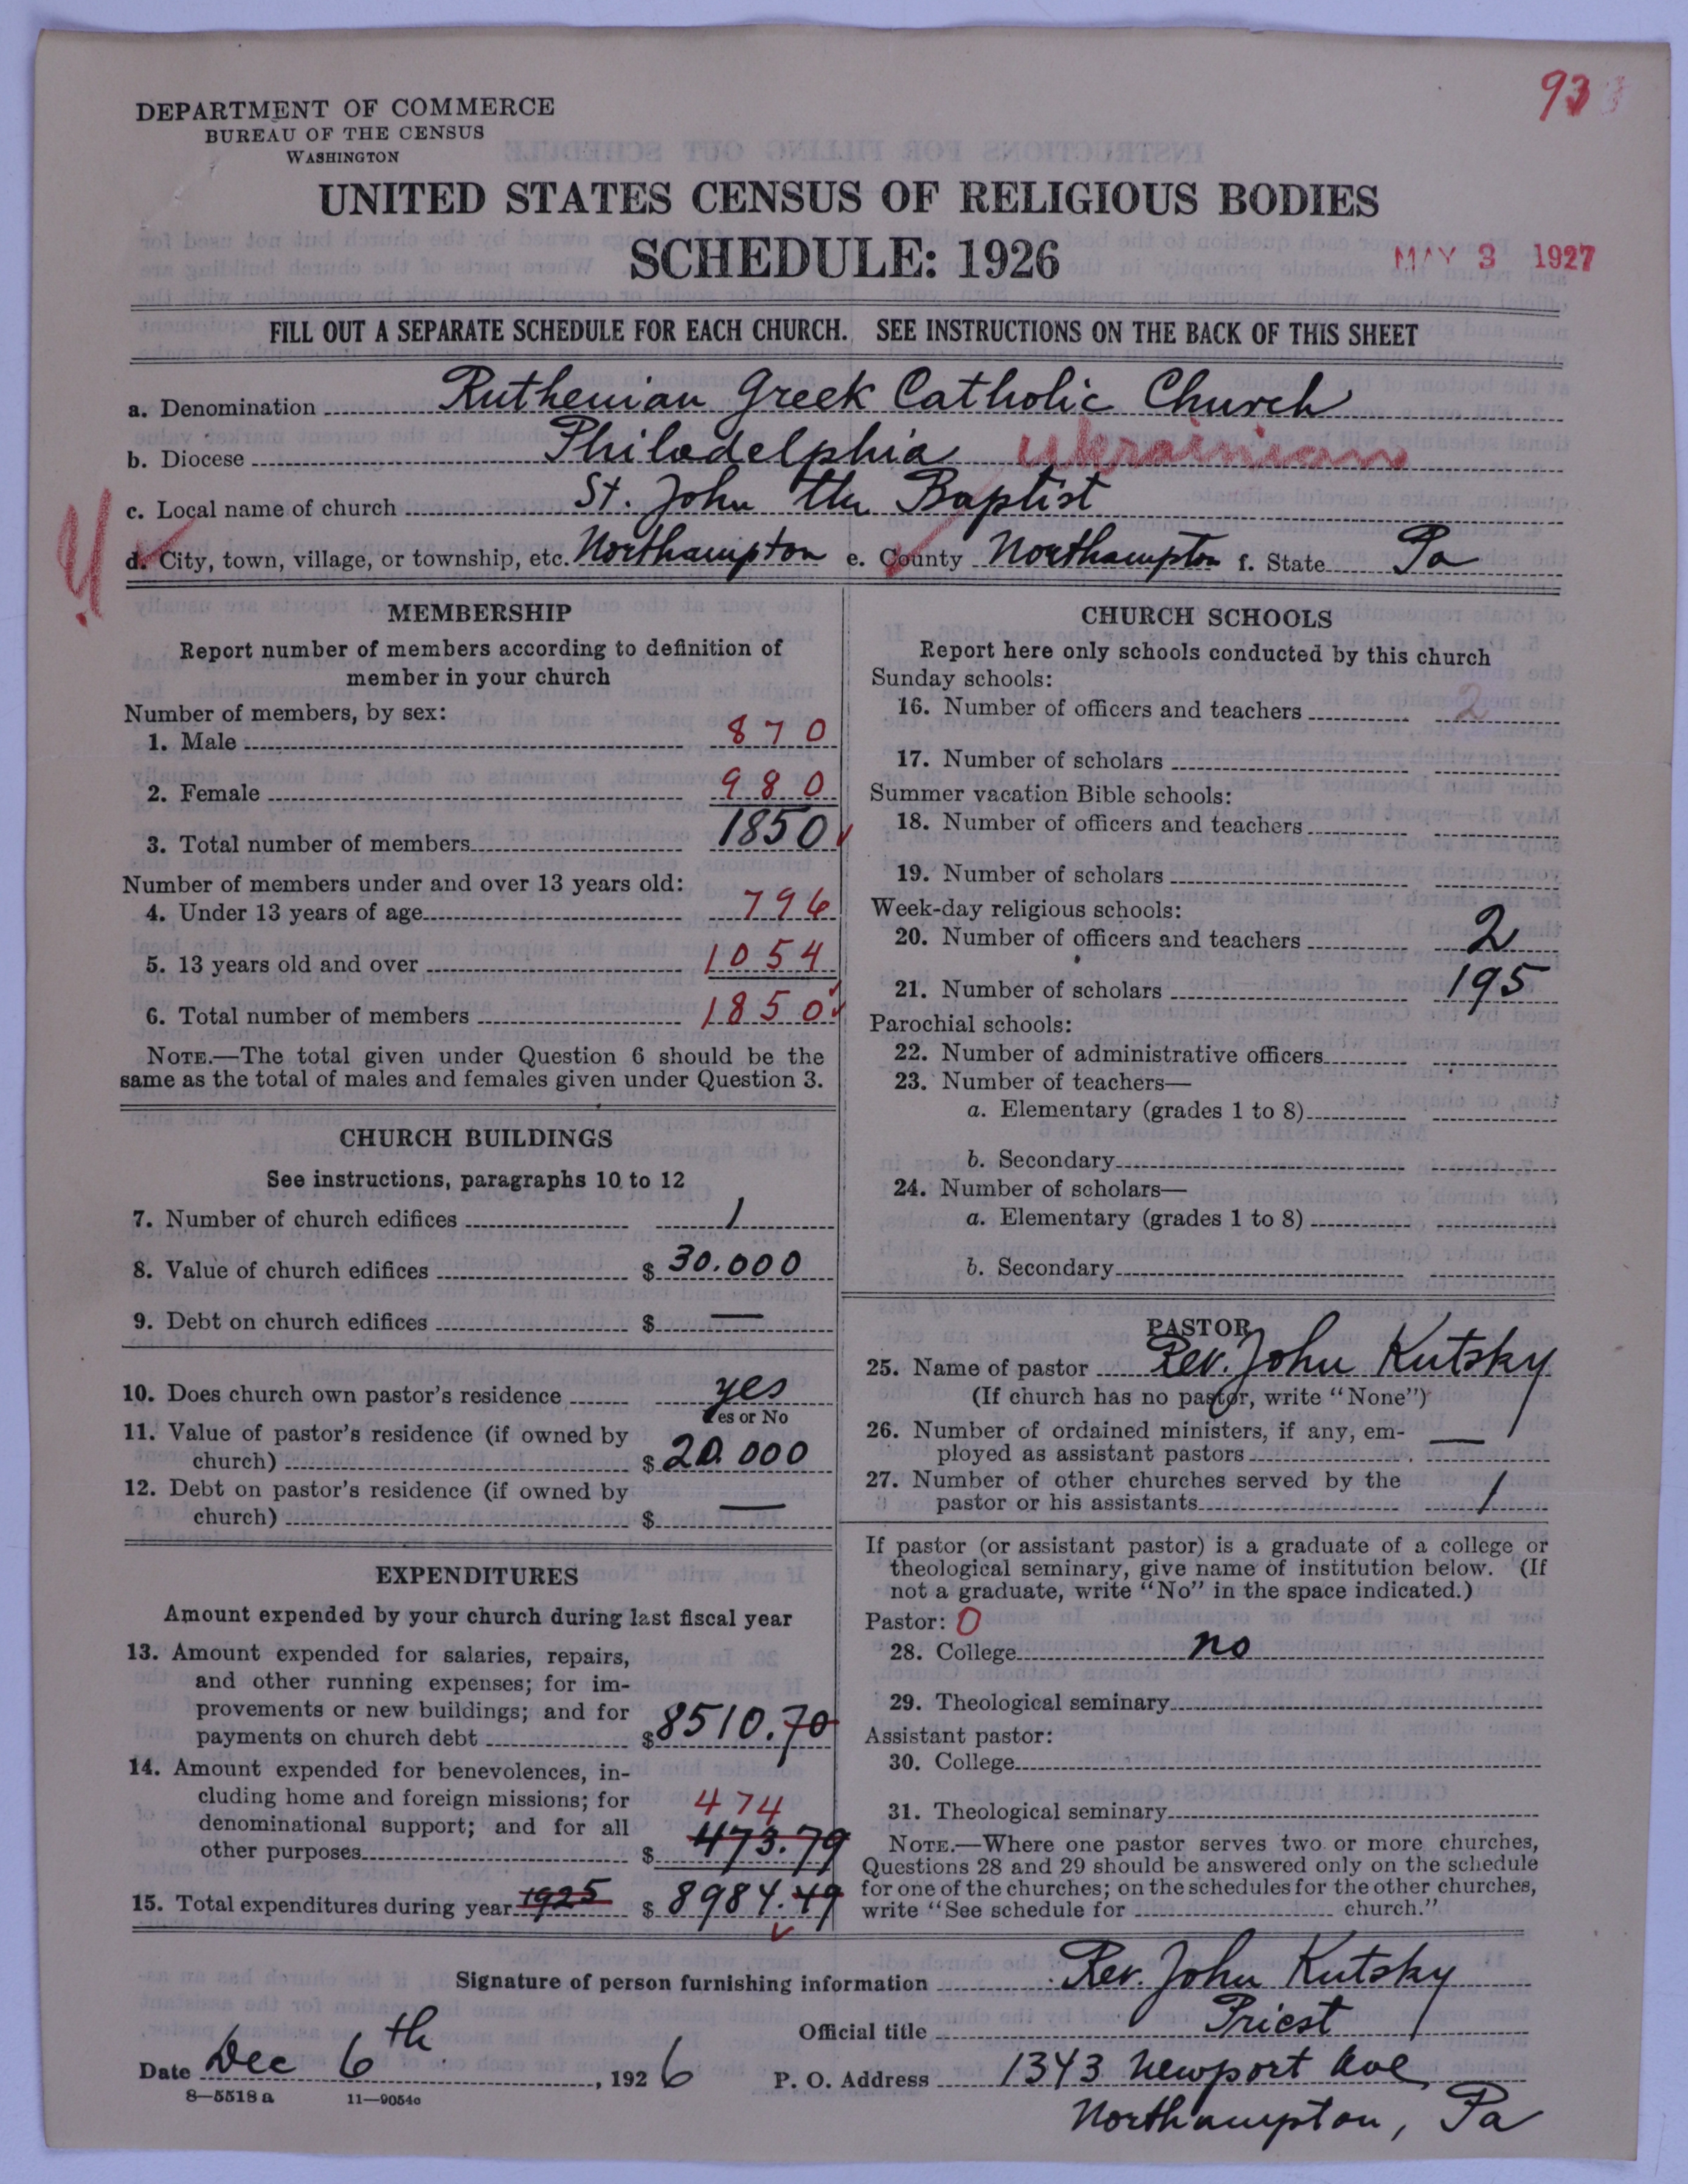 93
DEPARTMENT OF COMMERCE
BUREAU OF THE CENSUS
WASHINGTON
UNITED STATES CENSUS OF RELIGIOUS BODIES
SCHEDULE: 1926
MAY 3 1927
FILL OUT A SEPARATE SCHEDULE FOR EACH CHURCH. SEE INSTRUCTIONS ON THE BACK OF THIS SHEET
a. Denomination Ruthenian Greek Catholic Church
b. Diocese Philadelphia Ukrainian
c. Local name of church St. John the Baptist
d. City, town, village, or township, etc. Northampton e. County Northampton f. State Pa
MEMBERSHIP
Report number of members according to definition of
member in your church
Number of members, by sex:
1. Male 870
2. Female 980
3. Total number of members 1850
Number of members under and over 13 years old:
4. Under 13 years of age 796
5. 13 years old and over 1054
6. Total number of members 1850
NOTE.—The total given under Question 6 should be the
same as the total of males and females given under Question 3.
CHURCH BUILDINGS
See instructions, paragraphs 10 to 12
7. Number of church edifices 1
8. Value of church edifices $ 30.000
9. Debt on church edifices $ —
10. Does church own pastor's residence yes
Yes or No
11. Value of pastor's residence (if owned by
church) $ 20.000
12. Debt on pastor's residence (if owned by
church) $ —
EXPENDITURES
Amount expended by your church during last fiscal year
13. Amount expended for salaries, repairs,
and other running expenses; for im-
provements or new buildings; and for
payments on church debt $ 8510.70
14. Amount expended for benevolences, in-
cluding home and foreign missions; for
474
denominational support; and for all
other purposes $ 473.79
15. Total expenditures during year 1925 $ 8984.49
CHURCH SCHOOLS
Report here only schools conducted by this church
Sunday schools:
16. Number of officers and teachers 2
17. Number of scholars
Summer vacation Bible schools:
18. Number of officers and teachers
19. Number of scholars
Week-day religious schools:
20. Number of officers and teachers 2
21. Number of scholars 195
Parochial schools:
22. Number of administrative officers
23. Number of teachers—
a. Elementary (grades 1 to 8)
b. Secondary
24. Number of scholars—
a. Elementary (grades 1 to 8)
b. Secondary
PASTOR
25. Name of pastor Rev. John Kutsky
(If church has no pastor, write "None")
26. Number of ordained ministers, if any, em-
ployed as assistant pastors —
27. Number of other churches served by the
pastor or his assistants 1
If pastor (or assistant pastor) is a graduate of a college or
theological seminary, give name of institution below. (If
not a graduate, write "No" in the space indicated.)
Pastor: 0
28. College no
29. Theological seminary
Assistant pastor:
30. College
31. Theological seminary
NOTE.—Where one pastor serves two or more churches,
Questions 28 and 29 should be answered only on the schedule
for one of the churches; on the schedules for the other churches,
write "See schedule for church."
Signature of person furnishing information Rev. John Kutsky
Official title Priest
Date Dec 6th, 1926 P. O. Address 1343 Newport Ave
Northampton, Pa
8—5518 a 11—9054c